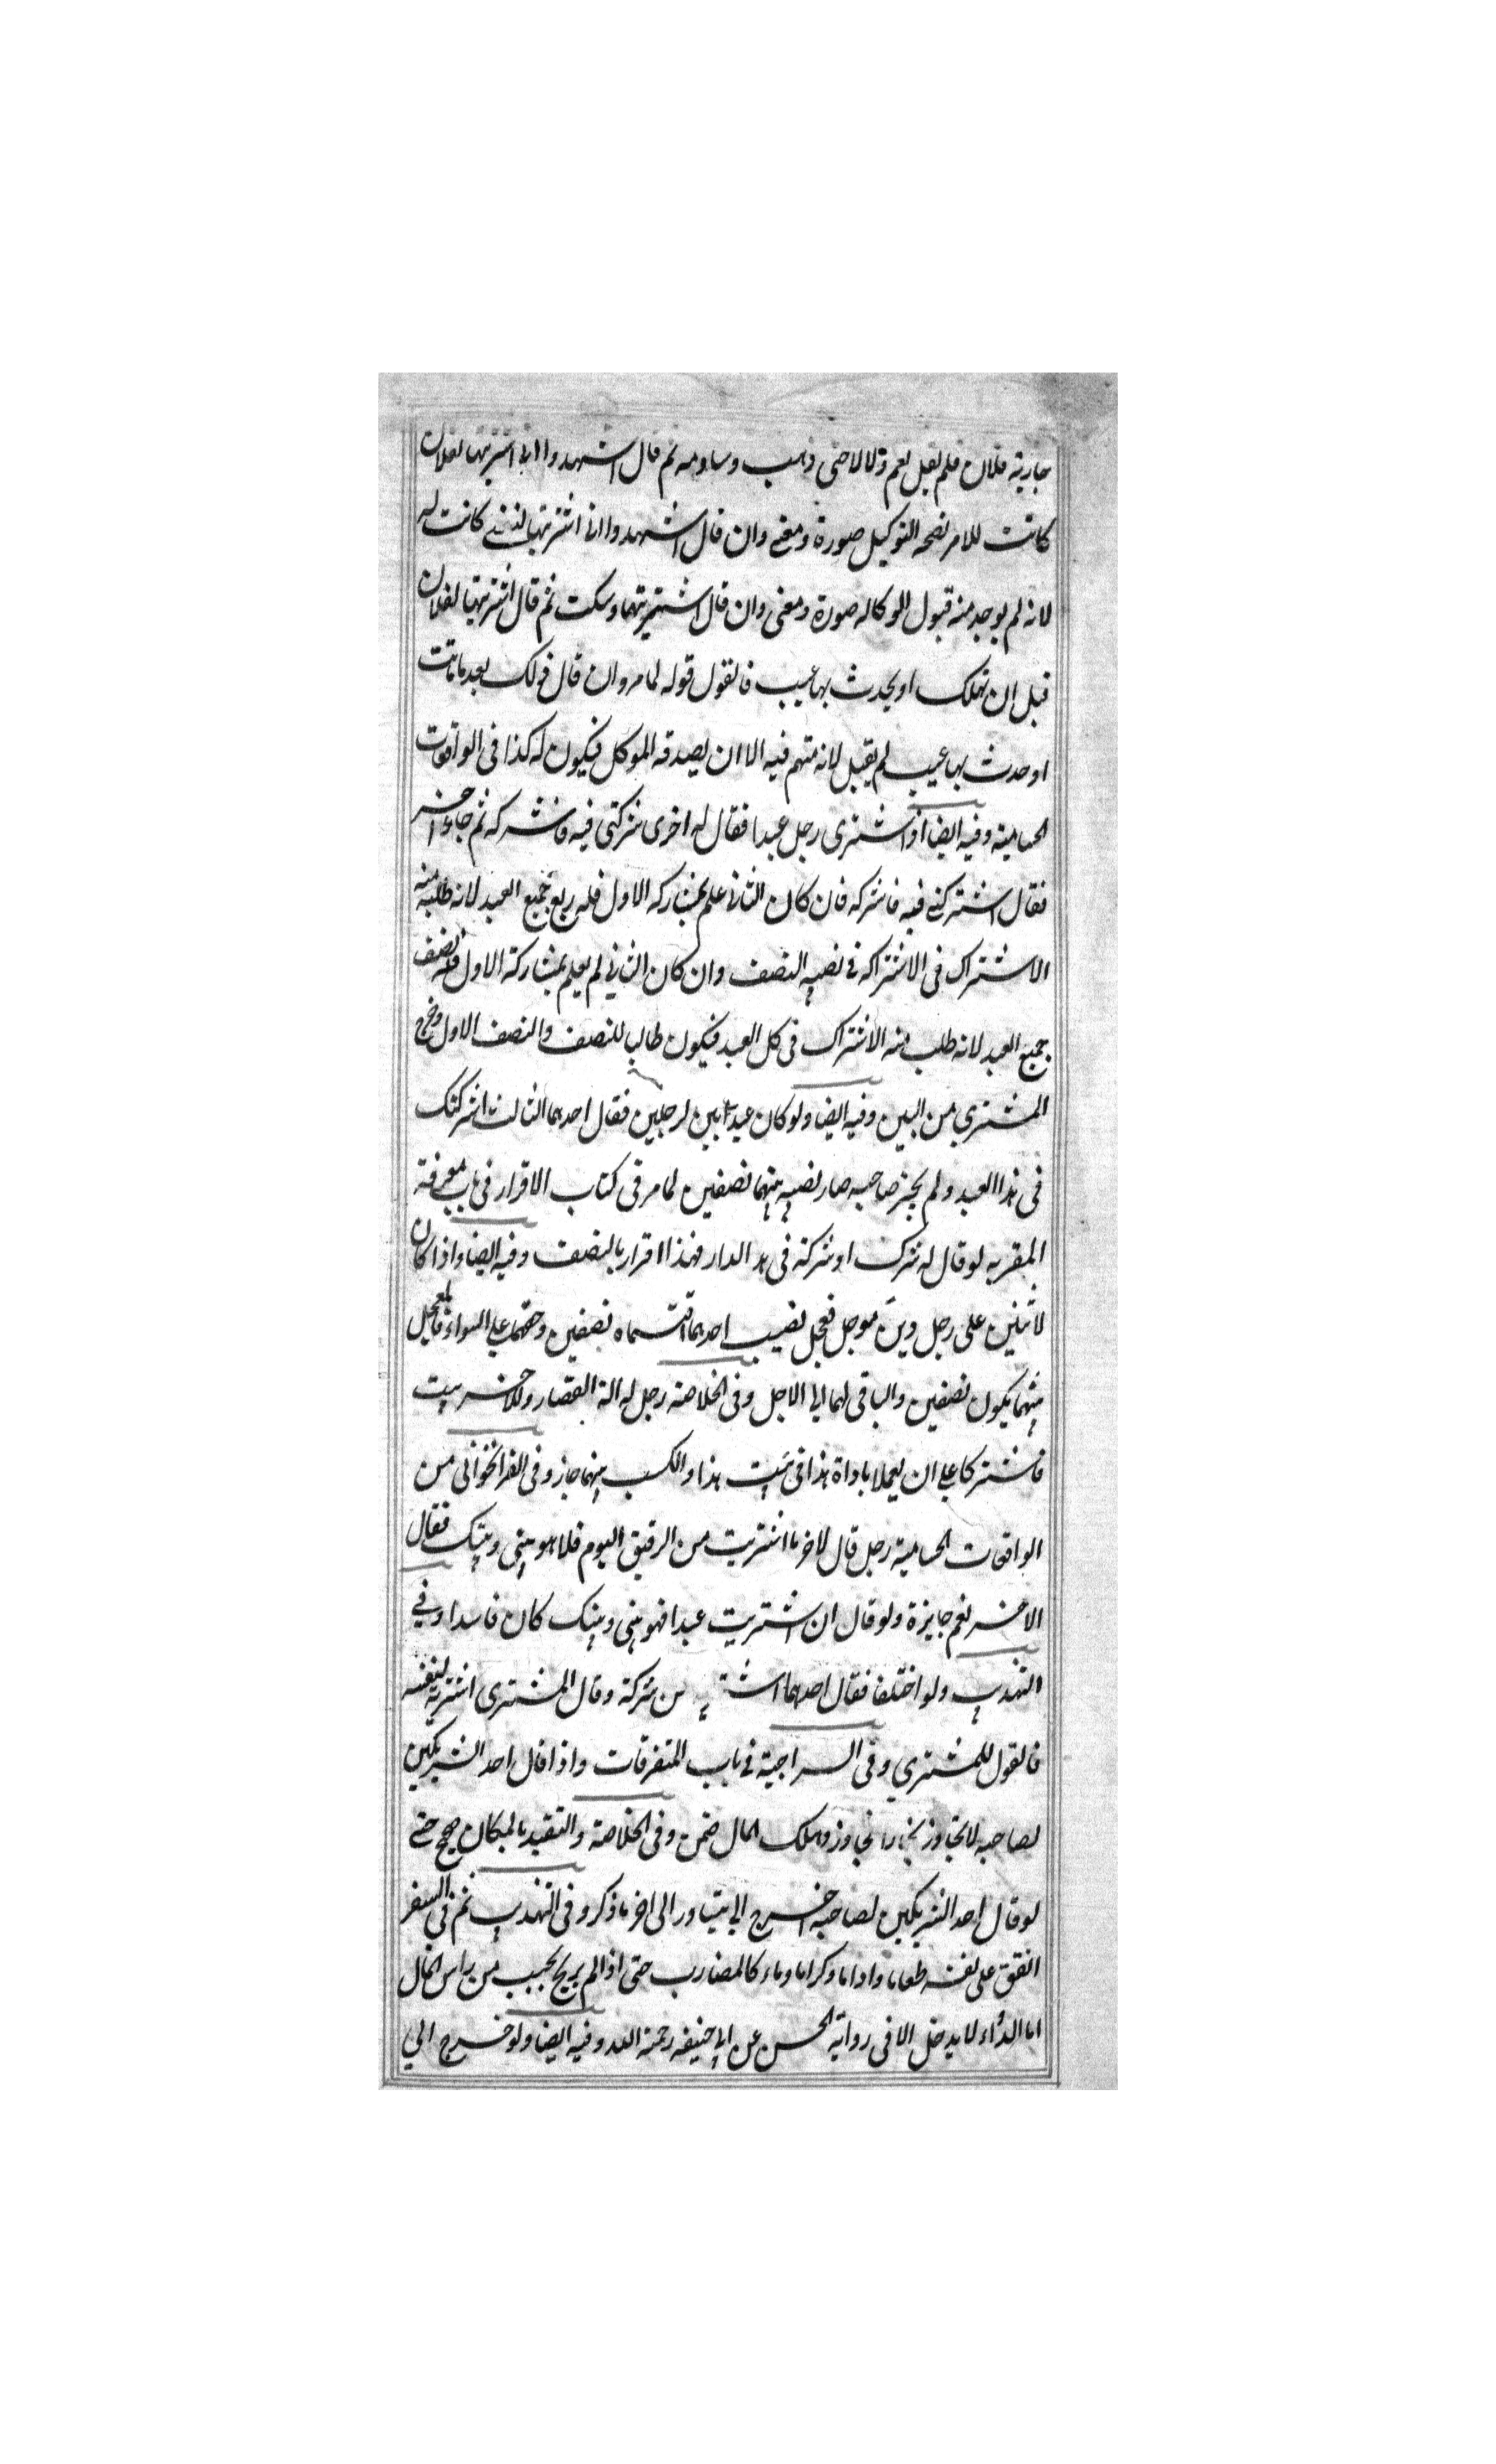 جارية فلان فلم يقل نعم ولا لا حتى ذهب وساومه ثم قال اشهدوا انى اشتريتها لفلان
كانت للامر لصحة التوكيل صورة ومعنى وان قال اشهدوا انى اشتريتها لنفسي كانت له
لانه لم يوجد منه قبول الوكاله صورة ومعنى وان قال اشتريتها وسكت ثم قال اشتريتها لفلان
قبل ان تهلك او يحدث بها عيب فالقول قوله لما مر وان قال ذلك بعد ما ماتت
او حدث بها عيب لم يقبل لانه متهم فيه الا ان يصدقه الموكل فيكون له كذا فى الواقعات
الحسامية وفيه ايضا اذا اشترى رجل عبدا فقال له اخرى شركتى فيه فاشركه ثم جاء اخر
فقال اشتركنى فيه فاشركه فان كان الثانى علم بمشاركه الاول فله ربع جميع العبد لانه طلب منه
الاشتراك فى الاشتراكه فى نصيبه النصف وان كان الثاني لم يعلم بمشاركة الاول فله نصف
جميع العبد لانه طلب منه الاشتراك فى كل العبد فيكون طالبا للنصف والنصف الاول وخرج
المشتري من البين وفيه ايضا ولو كان عبدا بين لرجلين فقال احدهما الثالث اشركتك
فى هذا العبد ولم يجز صاحبه صار نصيبه بينهما نصفين لما مر فى كتاب الاقرار فى باب معرفة
المقر به لو قال له شرك او شركة فى هذ الدار فهذا اقرار بالنصف وفيه ايضا واذا كان
لاثنين على رجل دين موجل فعجل نصيب احدهما اقتسماه نصفين وحقهما على السواء فالمعجل
بينهما يكون نصفين والباقى لهما الى الاجل وفى الخلاصة رجل له الة القصار وللاخر بيت
فاشتركا على ان يعملا باداة هذا فى بيت هذا والكسب بينهما جاز وفى القراخوانى من
الواقعات الحسامية رجل قال لاخر ما اشتريت من الرقيق اليوم فلما هو بينى وبينك فقال
الاخر نعم جايزة ولو قال ان اشتريت عبدا فهو بينى وبينك كان فاسدا وفي
التهذيب ولو اختلفا فقال احدهما من شركة وقال المشترى اشتريته لنفسه
فالقول للمشتري وفى السراجية فى باب المتفرقات واذا قال احد الشريكين
لصاحبه لا تجاوز بخارا فجاوز وهلك المال ضمن وفى الخلاصة والتقيد بالمكان صحيح حتى
لو قال احد الشريكين لصاحبه اخرج الى نيشاور الى اخر ما ذكر وفى التهذيب ثم فى السفر
انفق على نفسه طعاما واداما وكراما وماء كالمضارب حتى اذا لم يربح يحسب من راس المال
اما الدواء لا يدخل الا فى رواية الحسن عن ابى حنيفه رحمة الله وفيه ايضا ولو خرج الي